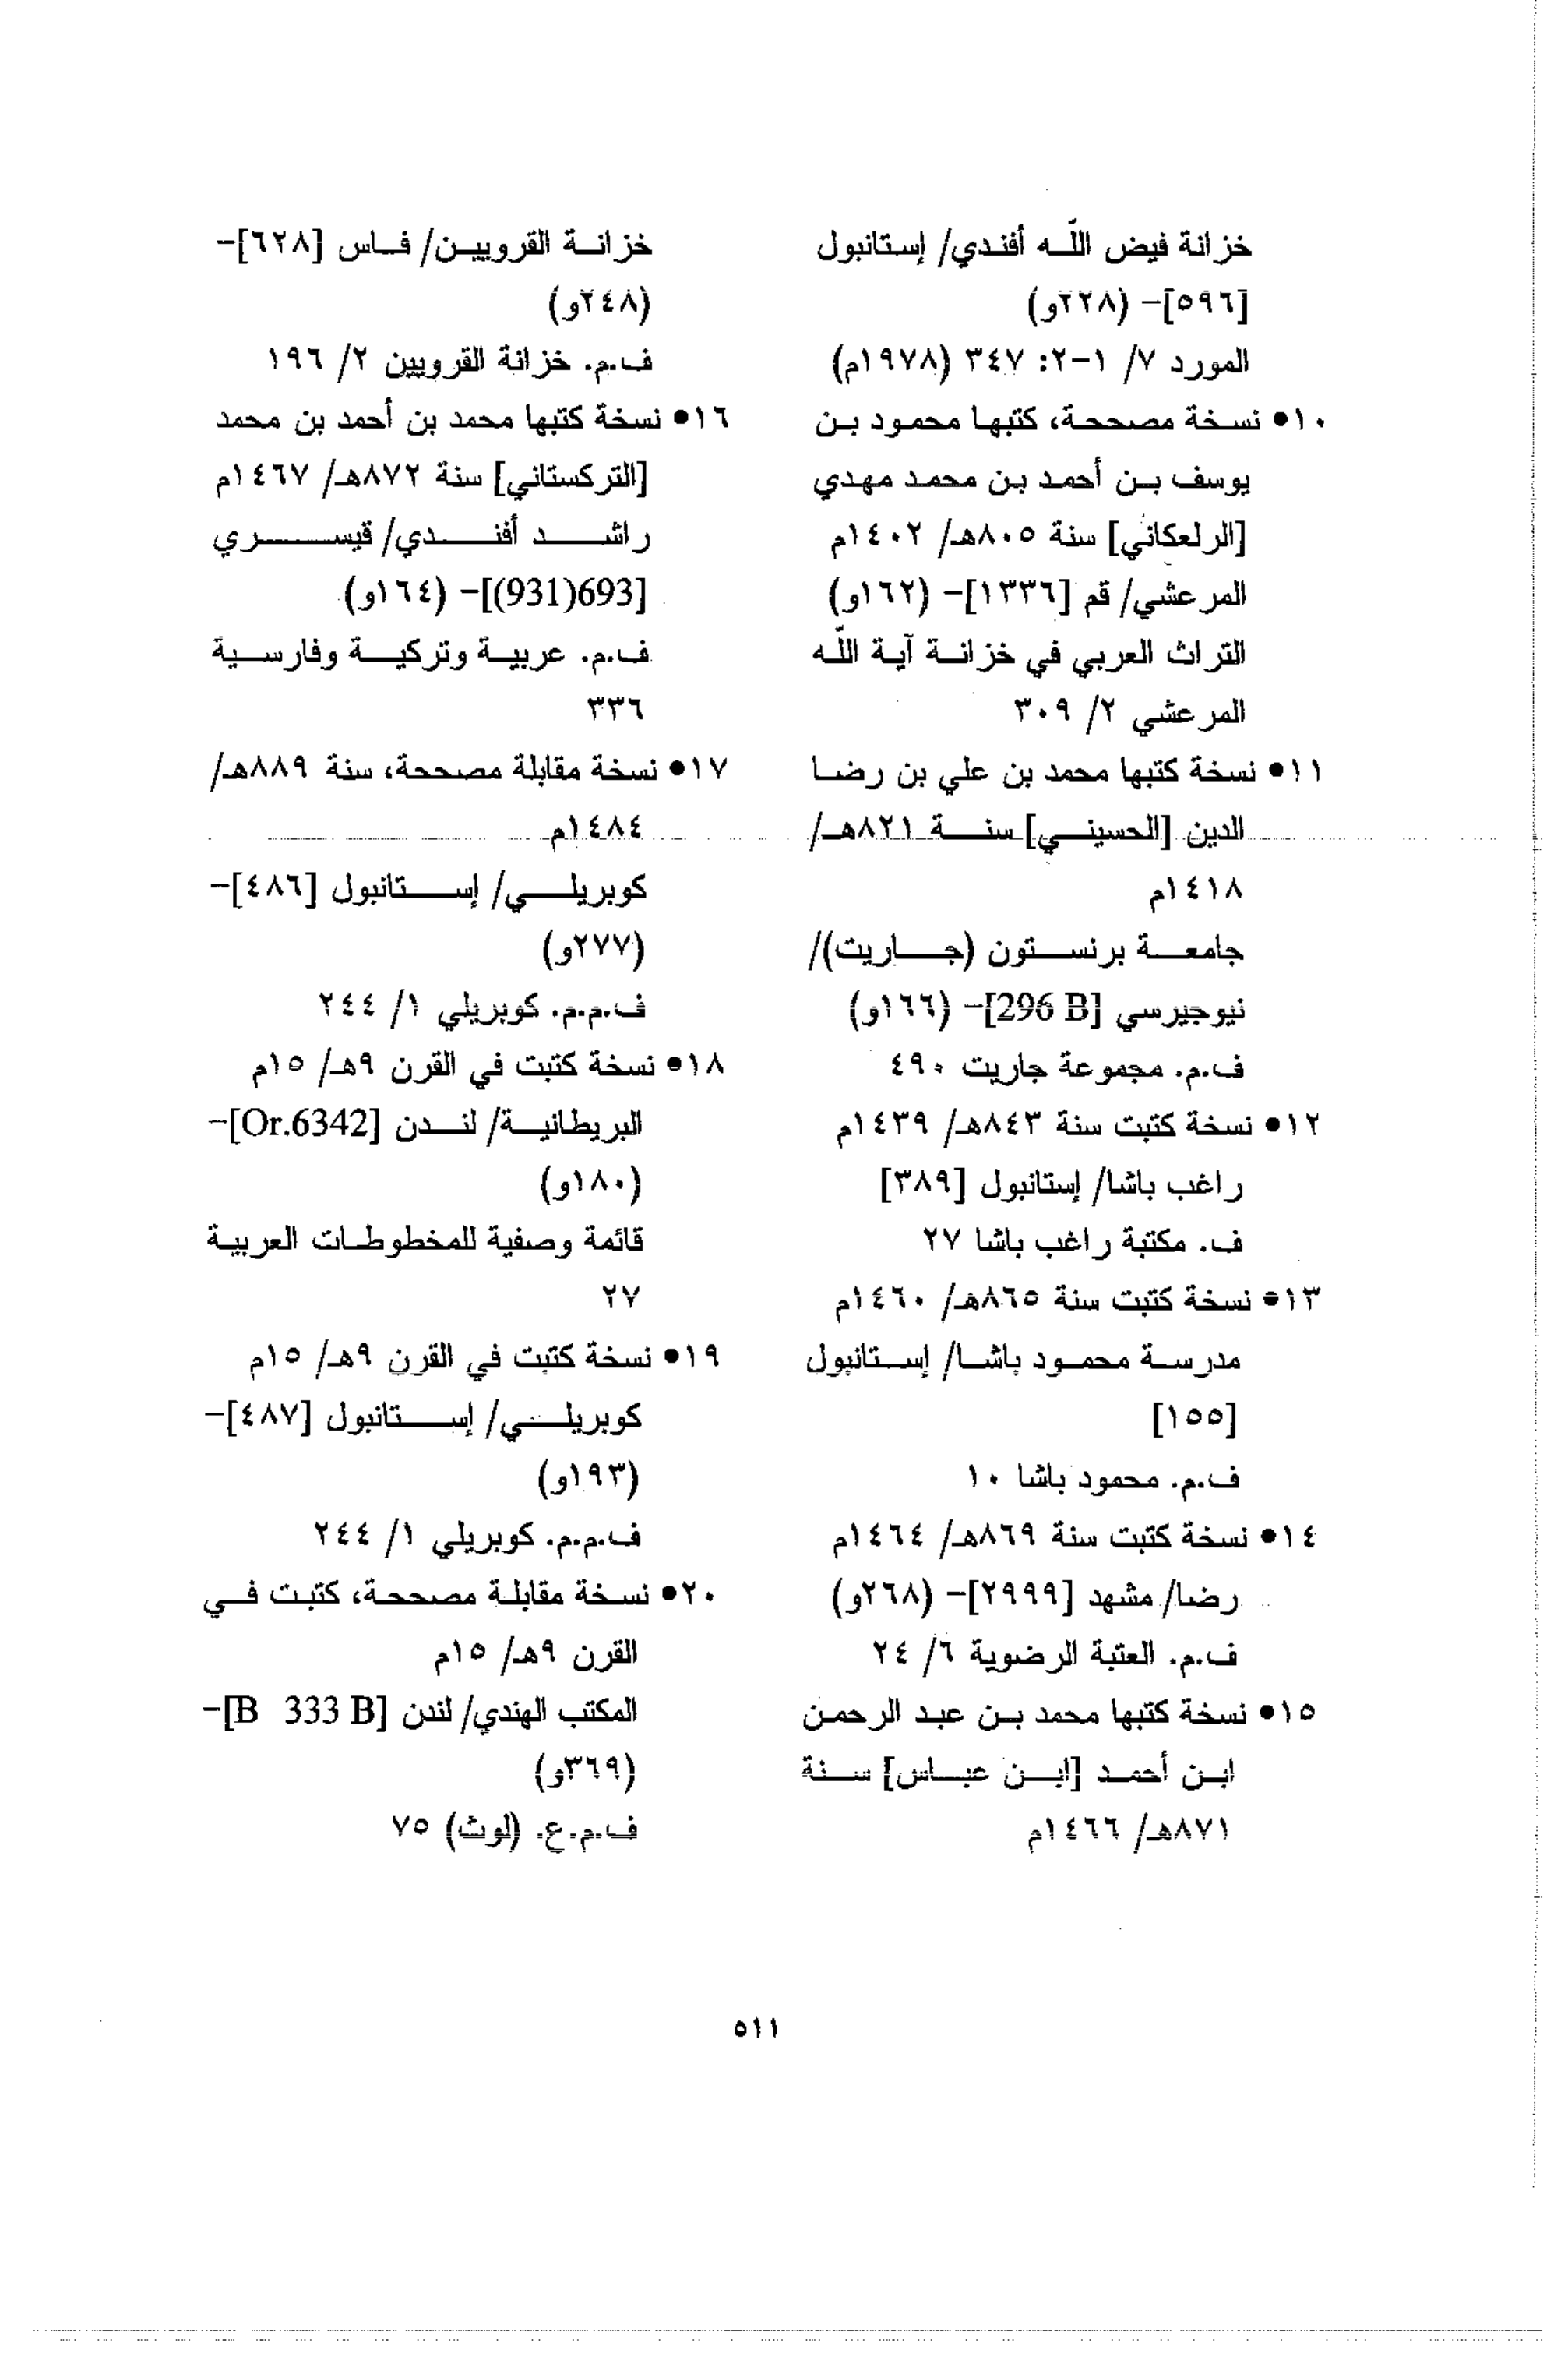 خزانة فيض اللّه أفندي/ إستانبول
[٥٩٦]- (٢٢٨و)
المورد ٧/ ١-٢: ٣٤٧ (١٩٧٨م)
١٠● نسخة مصححة، كتبها محمود بن
يوسف بن أحمد بن محمد مهدي
[الرلعكاني] سنة ٨٠٥هـ/ ١٤٠٢م
المرعشي/ قم [١٣٣٦]- (١٦٢و)
التراث العربي في خزانة آية اللّه
المرعشي ٢/ ٣٠٩
١١● نسخة كتبها محمد بن علي بن رضا
الدين [الحسيني] سنة ٨٢١هـ/
١٤١٨م
جامعة برنستون (جاريت)/
نيوجيرسي [296 B]- (١٦٦و)
ف.م. مجموعة جاريت ٤٩٠
١٢● نسخة كتبت سنة ٨٤٣هـ/ ١٤٣٩م
راغب باشا/ إستانبول [٣٨٩]
ف. مكتبة راغب باشا ٢٧
١٣● نسخة كتبت سنة ٨٦٥هـ/ ١٤٦٠م
مدرسة محمود باشا/ إستانبول
[١٥٥]
ف.م. محمود باشا ١٠
١٤● نسخة كتبت سنة ٨٦٩هـ/ ١٤٦٤م
رضا/ مشهد [٢٩٩٩]- (٢٦٨و)
ف.م. العتبة الرضوية ٦/ ٢٤
١٥● نسخة كتبها محمد بن عبد الرحمن
ابن أحمد [ابن عباس] سنة
٨٧١هـ/ ١٤٦٦م
خزانة القرويين/ فاس [٦٢٨]-
(٢٤٨و)
ف.م. خزانة القرويين ٢/ ١٩٦
١٦● نسخة كتبها محمد بن أحمد بن محمد
[التركستاني] سنة ٨٧٢هـ/ ١٤٦٧م
راشد أفندي/ قيسري
[693(931)]- (١٦٤و)
ف.م. عربية وتركية وفارسية
٣٣٦
١٧● نسخة مقابلة مصححة، سنة ٨٨٩هـ/
١٤٨٤م
كوبريلي/ إستانبول [٤٨٦]-
(٢٧٧و)
ف.م.م. كوبريلي ١/ ٢٤٤
١٨● نسخة كتبت في القرن ٩هـ/ ١٥م
البريطانية/ لندن [Or.6342]-
(١٨٠و)
قائمة وصفية للمخطوطات العربية
٢٧
١٩● نسخة كتبت في القرن ٩هـ/ ١٥م
كوبريلي/ إستانبول [٤٨٧]-
(١٩٣و)
ف.م.م. كوبريلي ١/ ٢٤٤
٢٠● نسخة مقابلة مصححة، كتبت في
القرن ٩هـ/ ١٥م
المكتب الهندي/ لندن [B 333 B]-
(٣٦٩و)
ف.م.ع. (لوث) ٧٥
٥١١